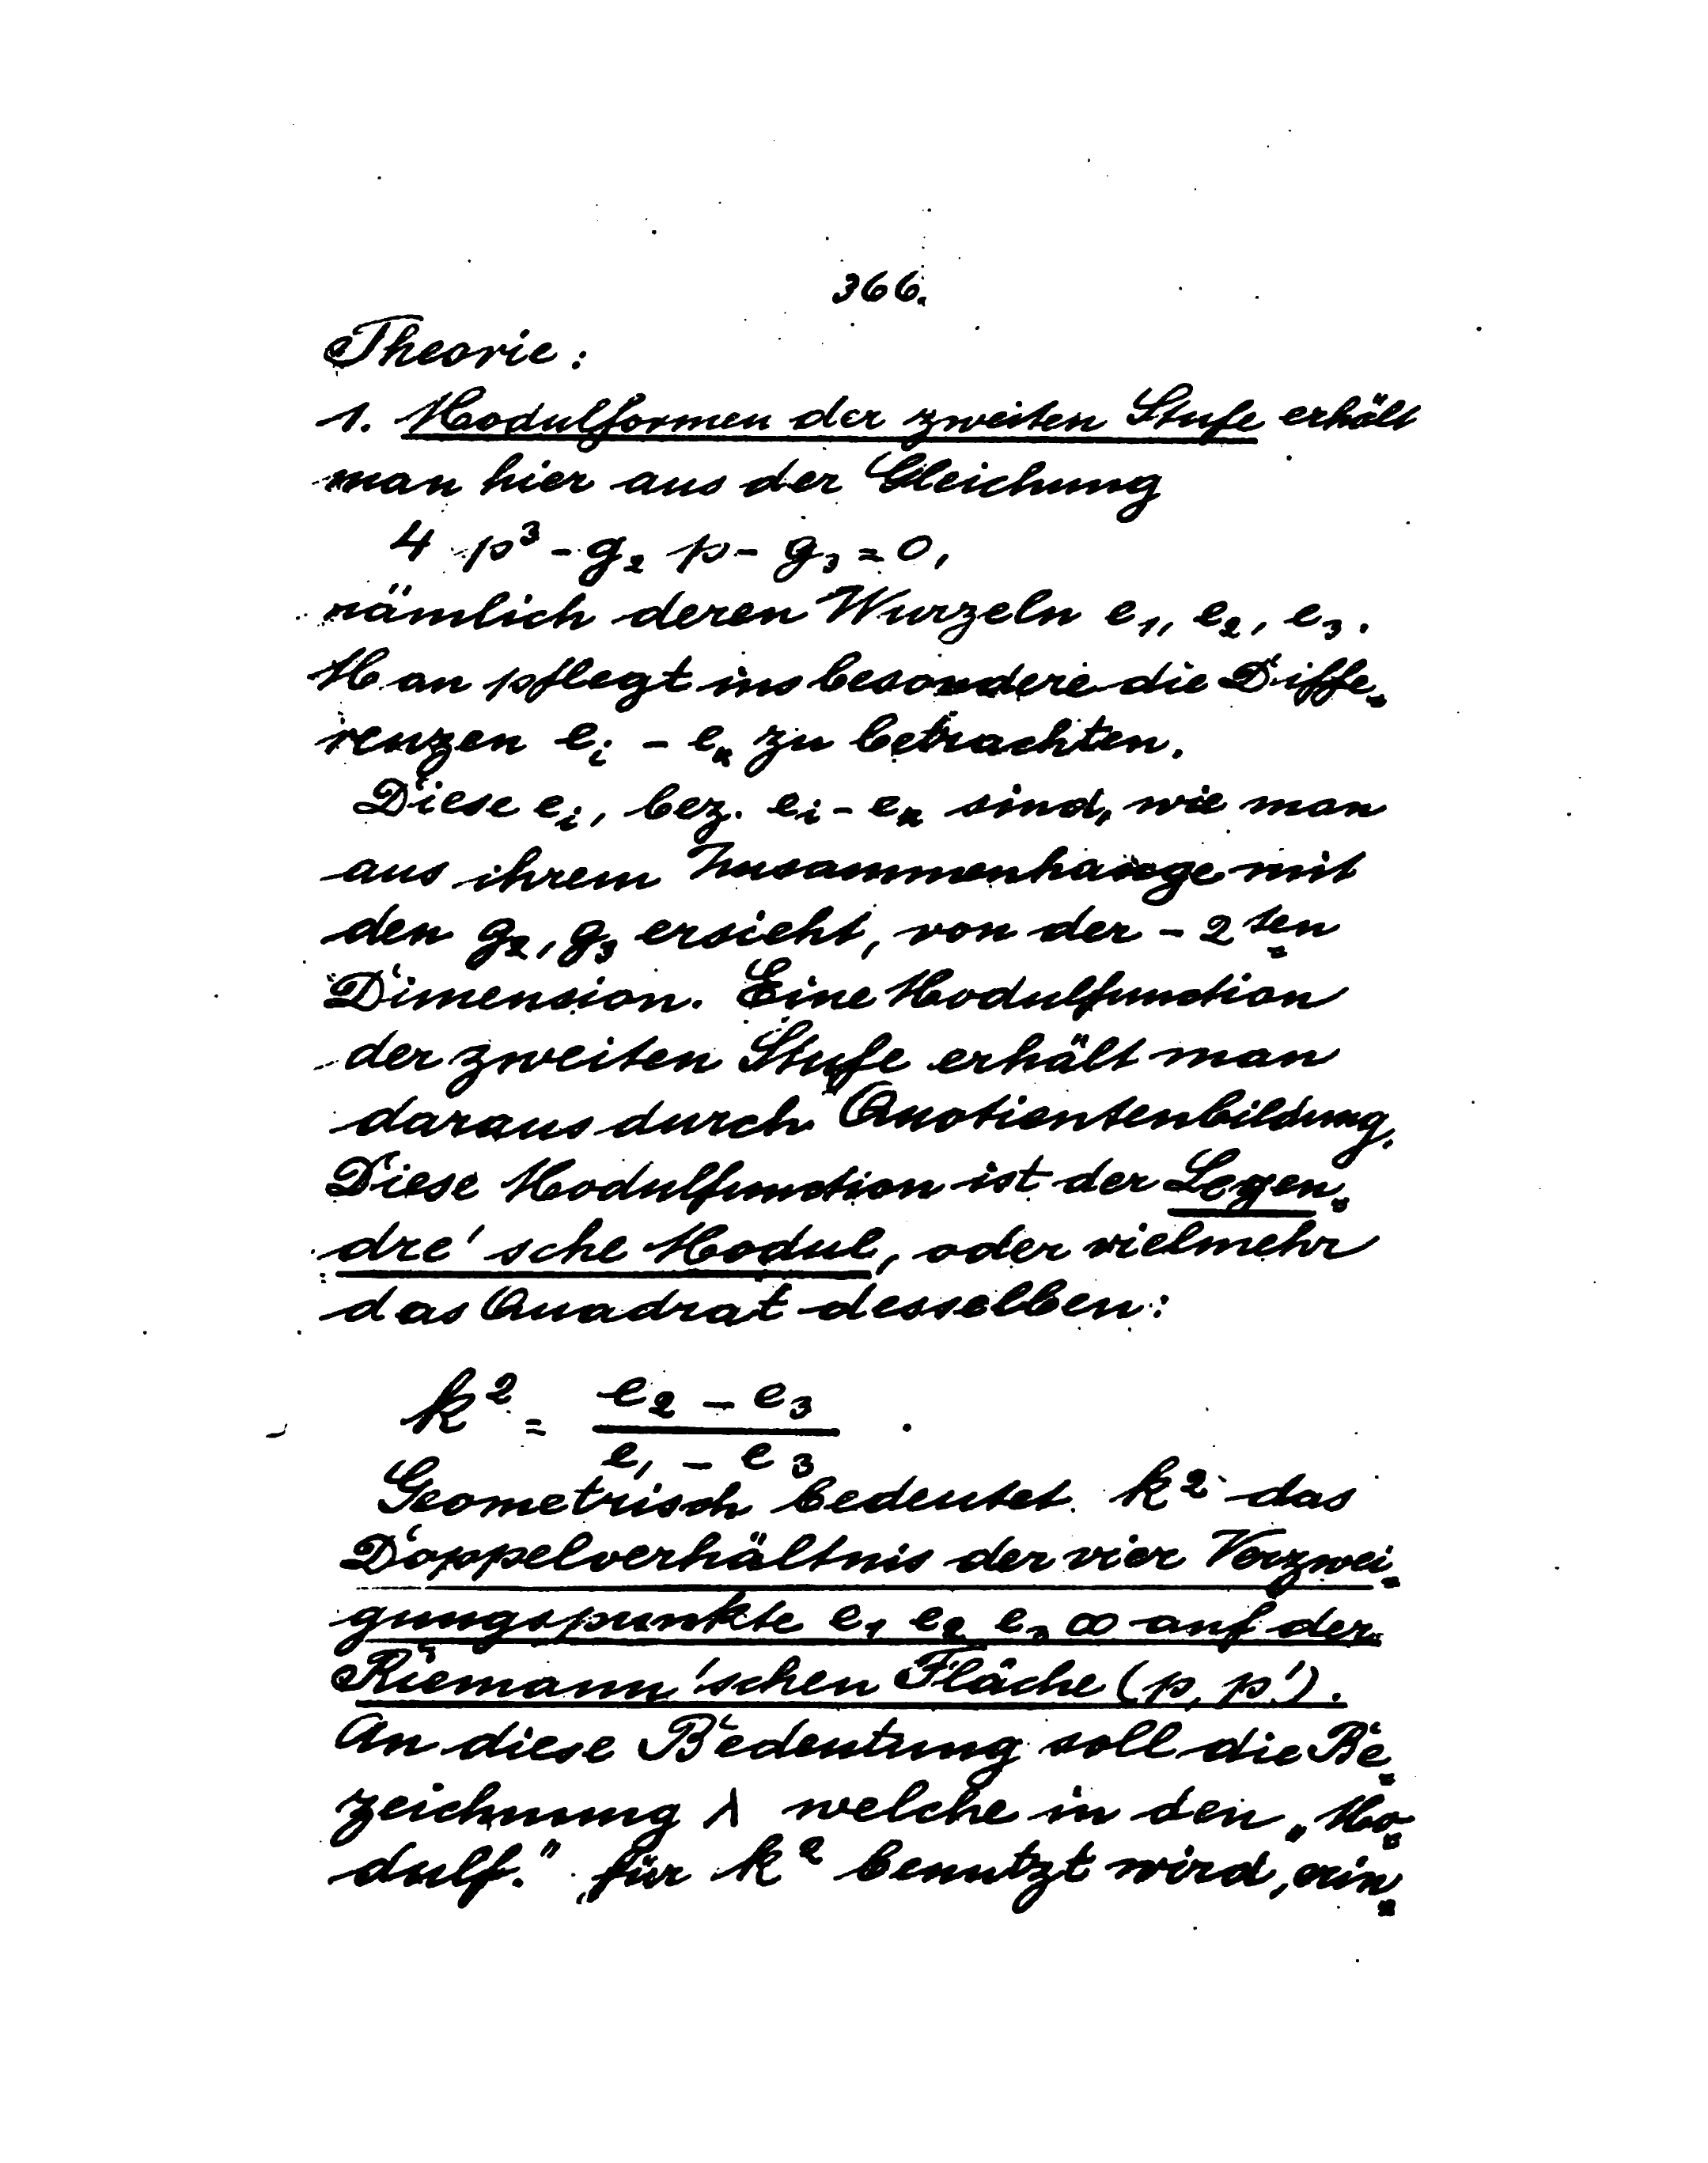 366.
Theorie:
1. Modulformen der zweiten Stufe erhält
man hier aus der Gleichung
4 p³ - g₂ p - g₃ = 0,
nämlich deren Wurzeln e₁, e₂, e₃.
Man pflegt insbesondere die Diffe-
renzen eᵢ - eₖ zu betrachten.
Diese eᵢ, bez. eᵢ - eₖ sind, wie man
aus ihrem Zusammenhange mit
den g₂, g₃ ersieht, von der - 2ten
Dimension. Eine Modulfunction
der zweiten Stufe erhält man
daraus durch Quotientenbildung.
Diese Modulfunction ist der Legen-
dre'sche Modul, oder vielmehr
das Quadrat desselben:
k² = (e₂ - e₃) / (e₁ - e₃) .
Geometrisch bedeutet k² das
Doppelverhältnis der vier Verzwei-
gungspunkte e₁ e₂ e₃ ∞ auf der
Riemann'schen Fläche (p, p').
An diese Bedeutung soll die Be-
zeichnung λ welche in den „Mo-
dulf." für k² benutzt wird, erin-